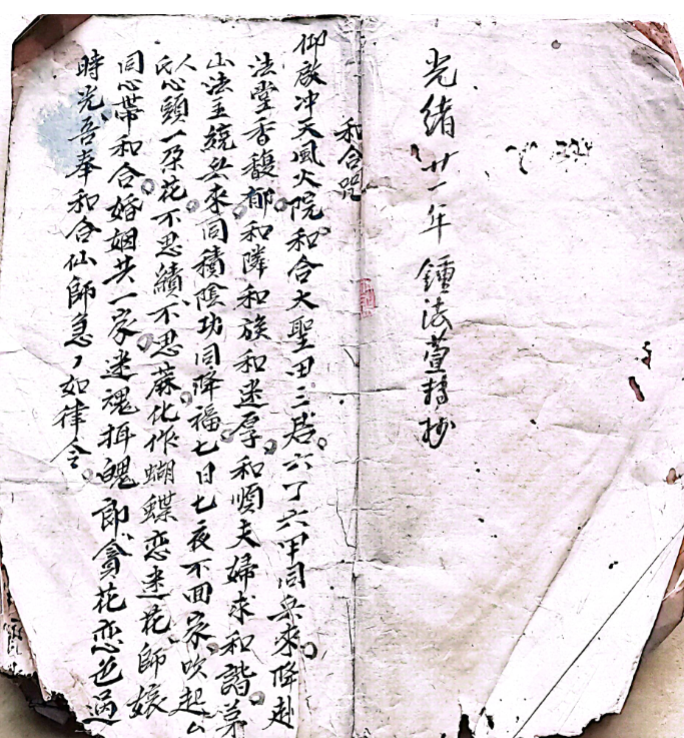 光緒廿一年 鍾法萱轉抄
和合咒
仰啟冲天風火院和合大聖田三君六丁六甲同兵來降赴
法堂香馥郁和隣和族和迷厚和順夫婦求和諧茅
山法主統兵來同積陰功同降福七日七夜不回家吹起厶
人氏心頭一朵花不思績不思蔴化作蝴蝶恋迷花師娘
同心帶和合婚姻共一家迷魂拜魄郎貪花恋色過
時光吾奉和合仙師急々如律令